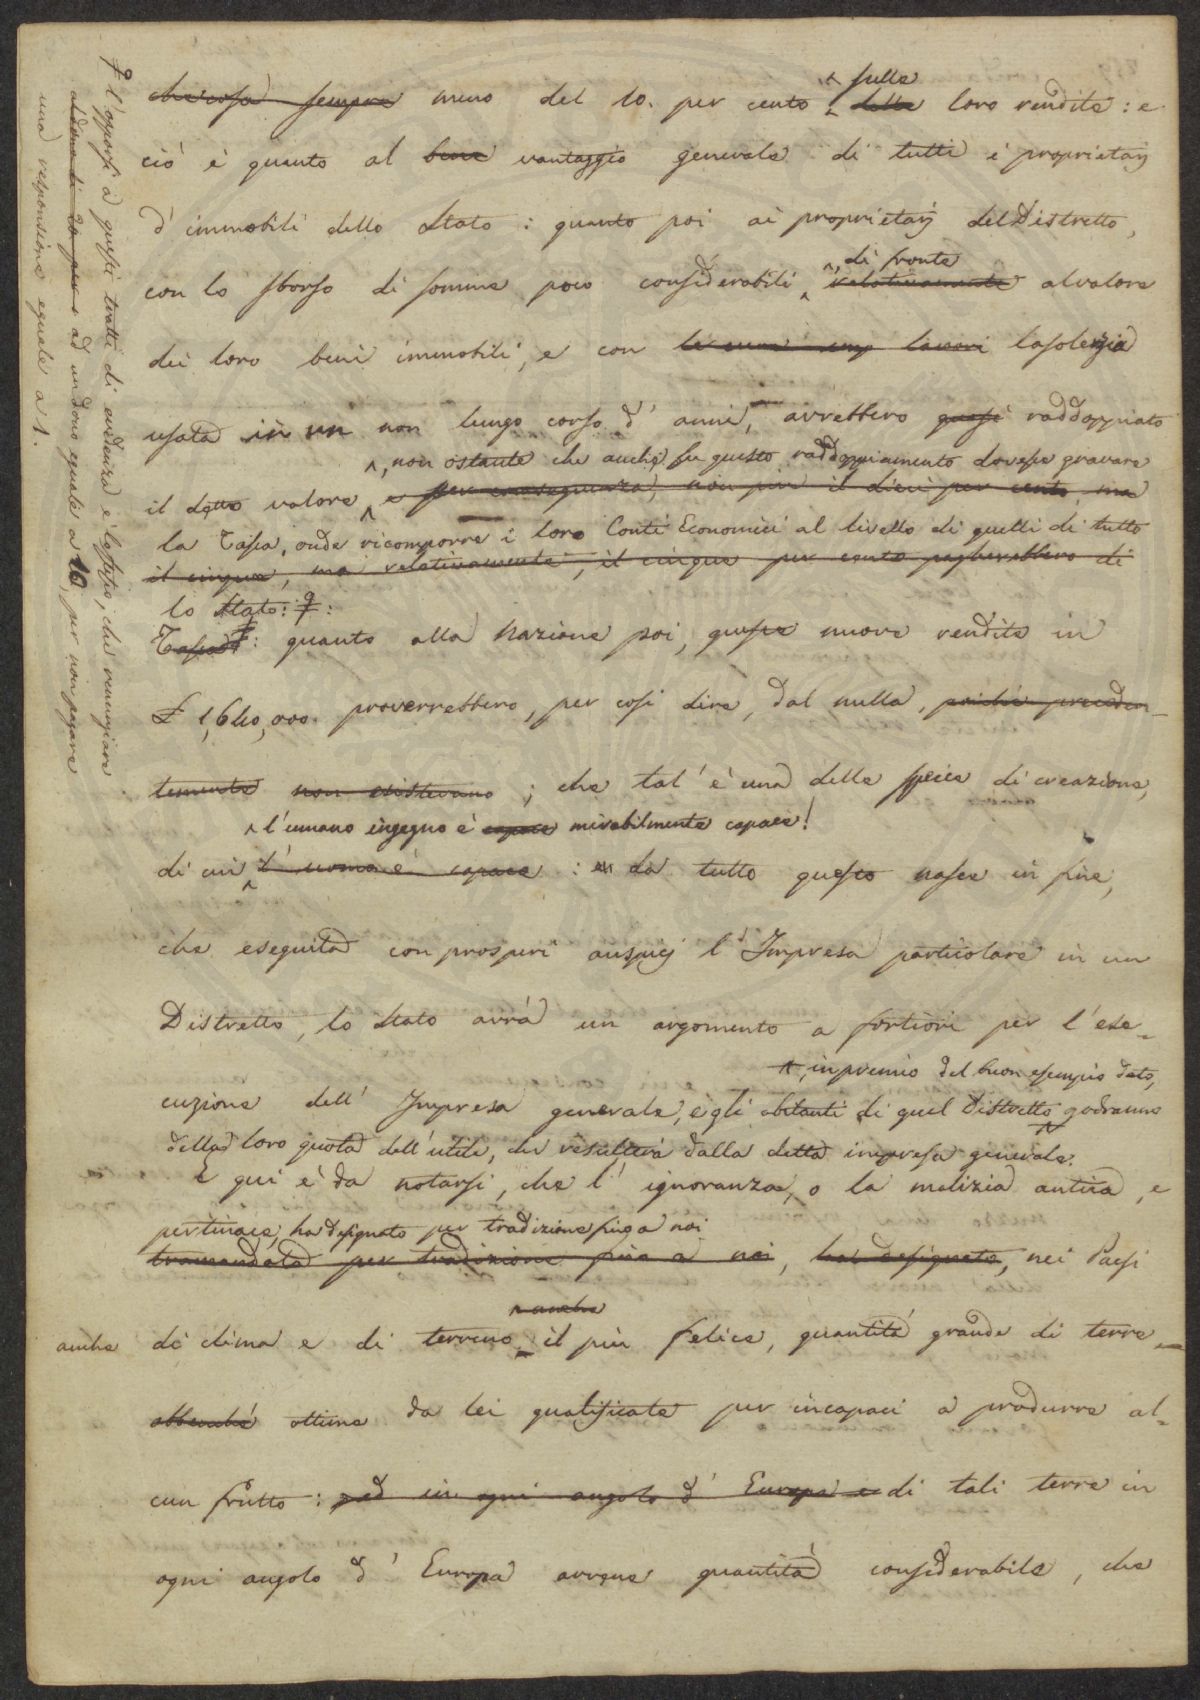 che cosa sempre meno del 10. per cento delle sulle loro rendite: e
ciò è quanto al bene vantaggio generale di tutti i proprietarj
d'immobili dello Stato: quanto poi ai proprietarj del Distretto,
, di fronte
con lo sborso di somme poco considerabili relativamente al valore
dei loro beni immobili, e con lavori la solerzia
usata in un non lungo corso d'anni, avrebbero quasi raddoppiato
, non ostante che anche su questo raddoppiamento dovesse gravare
il detto valore, e per conseguenza, non più il dieci per cento, ma
la Tassa, onde ricomporre i loro Conti Economici al livello di quelli di tutto
il cinque, ma relativamente, il cinque per cento pagherebbero di
lo Stato:
Tassa: quanto alla Nazione poi, queste nuove rendite in
£ 1,640,000. proverrebbero, per così dire, dal nulla, poichè preceden-
temente non esistevano; che tal'è una delle specie di creazione,
l'umano ingegno è capace mirabilmente capace!
di cui l'uomo è capace: da tutto questo nasce in fine,
che eseguita con prosperi auspicj l'Impresa particolare in un
Distretto, lo Stato avrà un argomento a fortiori per l'ese-
, in premio del buon esempio dato,
cuzione dell'Impresa generale, e gli abitanti di quel Distretto godranno
della loro quota dell'utile, che resulterà dalla detta impresa generale.
E qui è da notarsi, che l'ignoranza, o la malizia antica, e
pertinace, ha designato per tradizione fino a noi
tramandata per tradizione fino a noi, ha designato, nei Paesi
anche
anche di clima e di terreno il più felice, quantità grande di terre
abbenchè ottime da lei qualificate per incapaci a produrre al-
cun frutto: ed in ogni angolo d'Europa e di tali terre in
ogni angolo d'Europa avvene quantità considerabile, che
l'opporsi a questi tratti di evidenza è lo stesso, che rinunziare
ad un dono eguale a 10, per non pagare
una responsione eguale a 1.